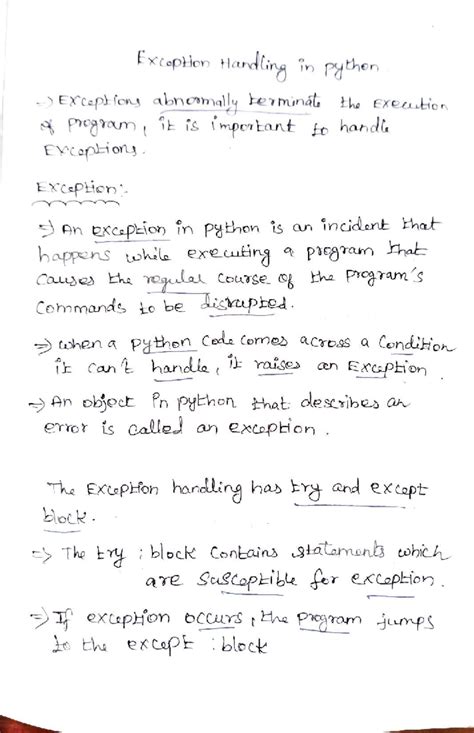 Exception Handling in python
-> Exceptions abnormally terminate the execution
of program, it is important to handle
Exceptions.
Exception:-
=> An exception in python is an incident that
happens while executing a program that
causes the regular course of the program's
commands to be disrupted.
=> when a python code comes across a condition
it can't handle, it raises an Exception
=> An object in python that describes an
error is called an exception.
The Exception handling has try and except
block.
=> The try : block contains statements which
are susceptible for exception.
=> If exception occurs, the program jumps
to the except : block